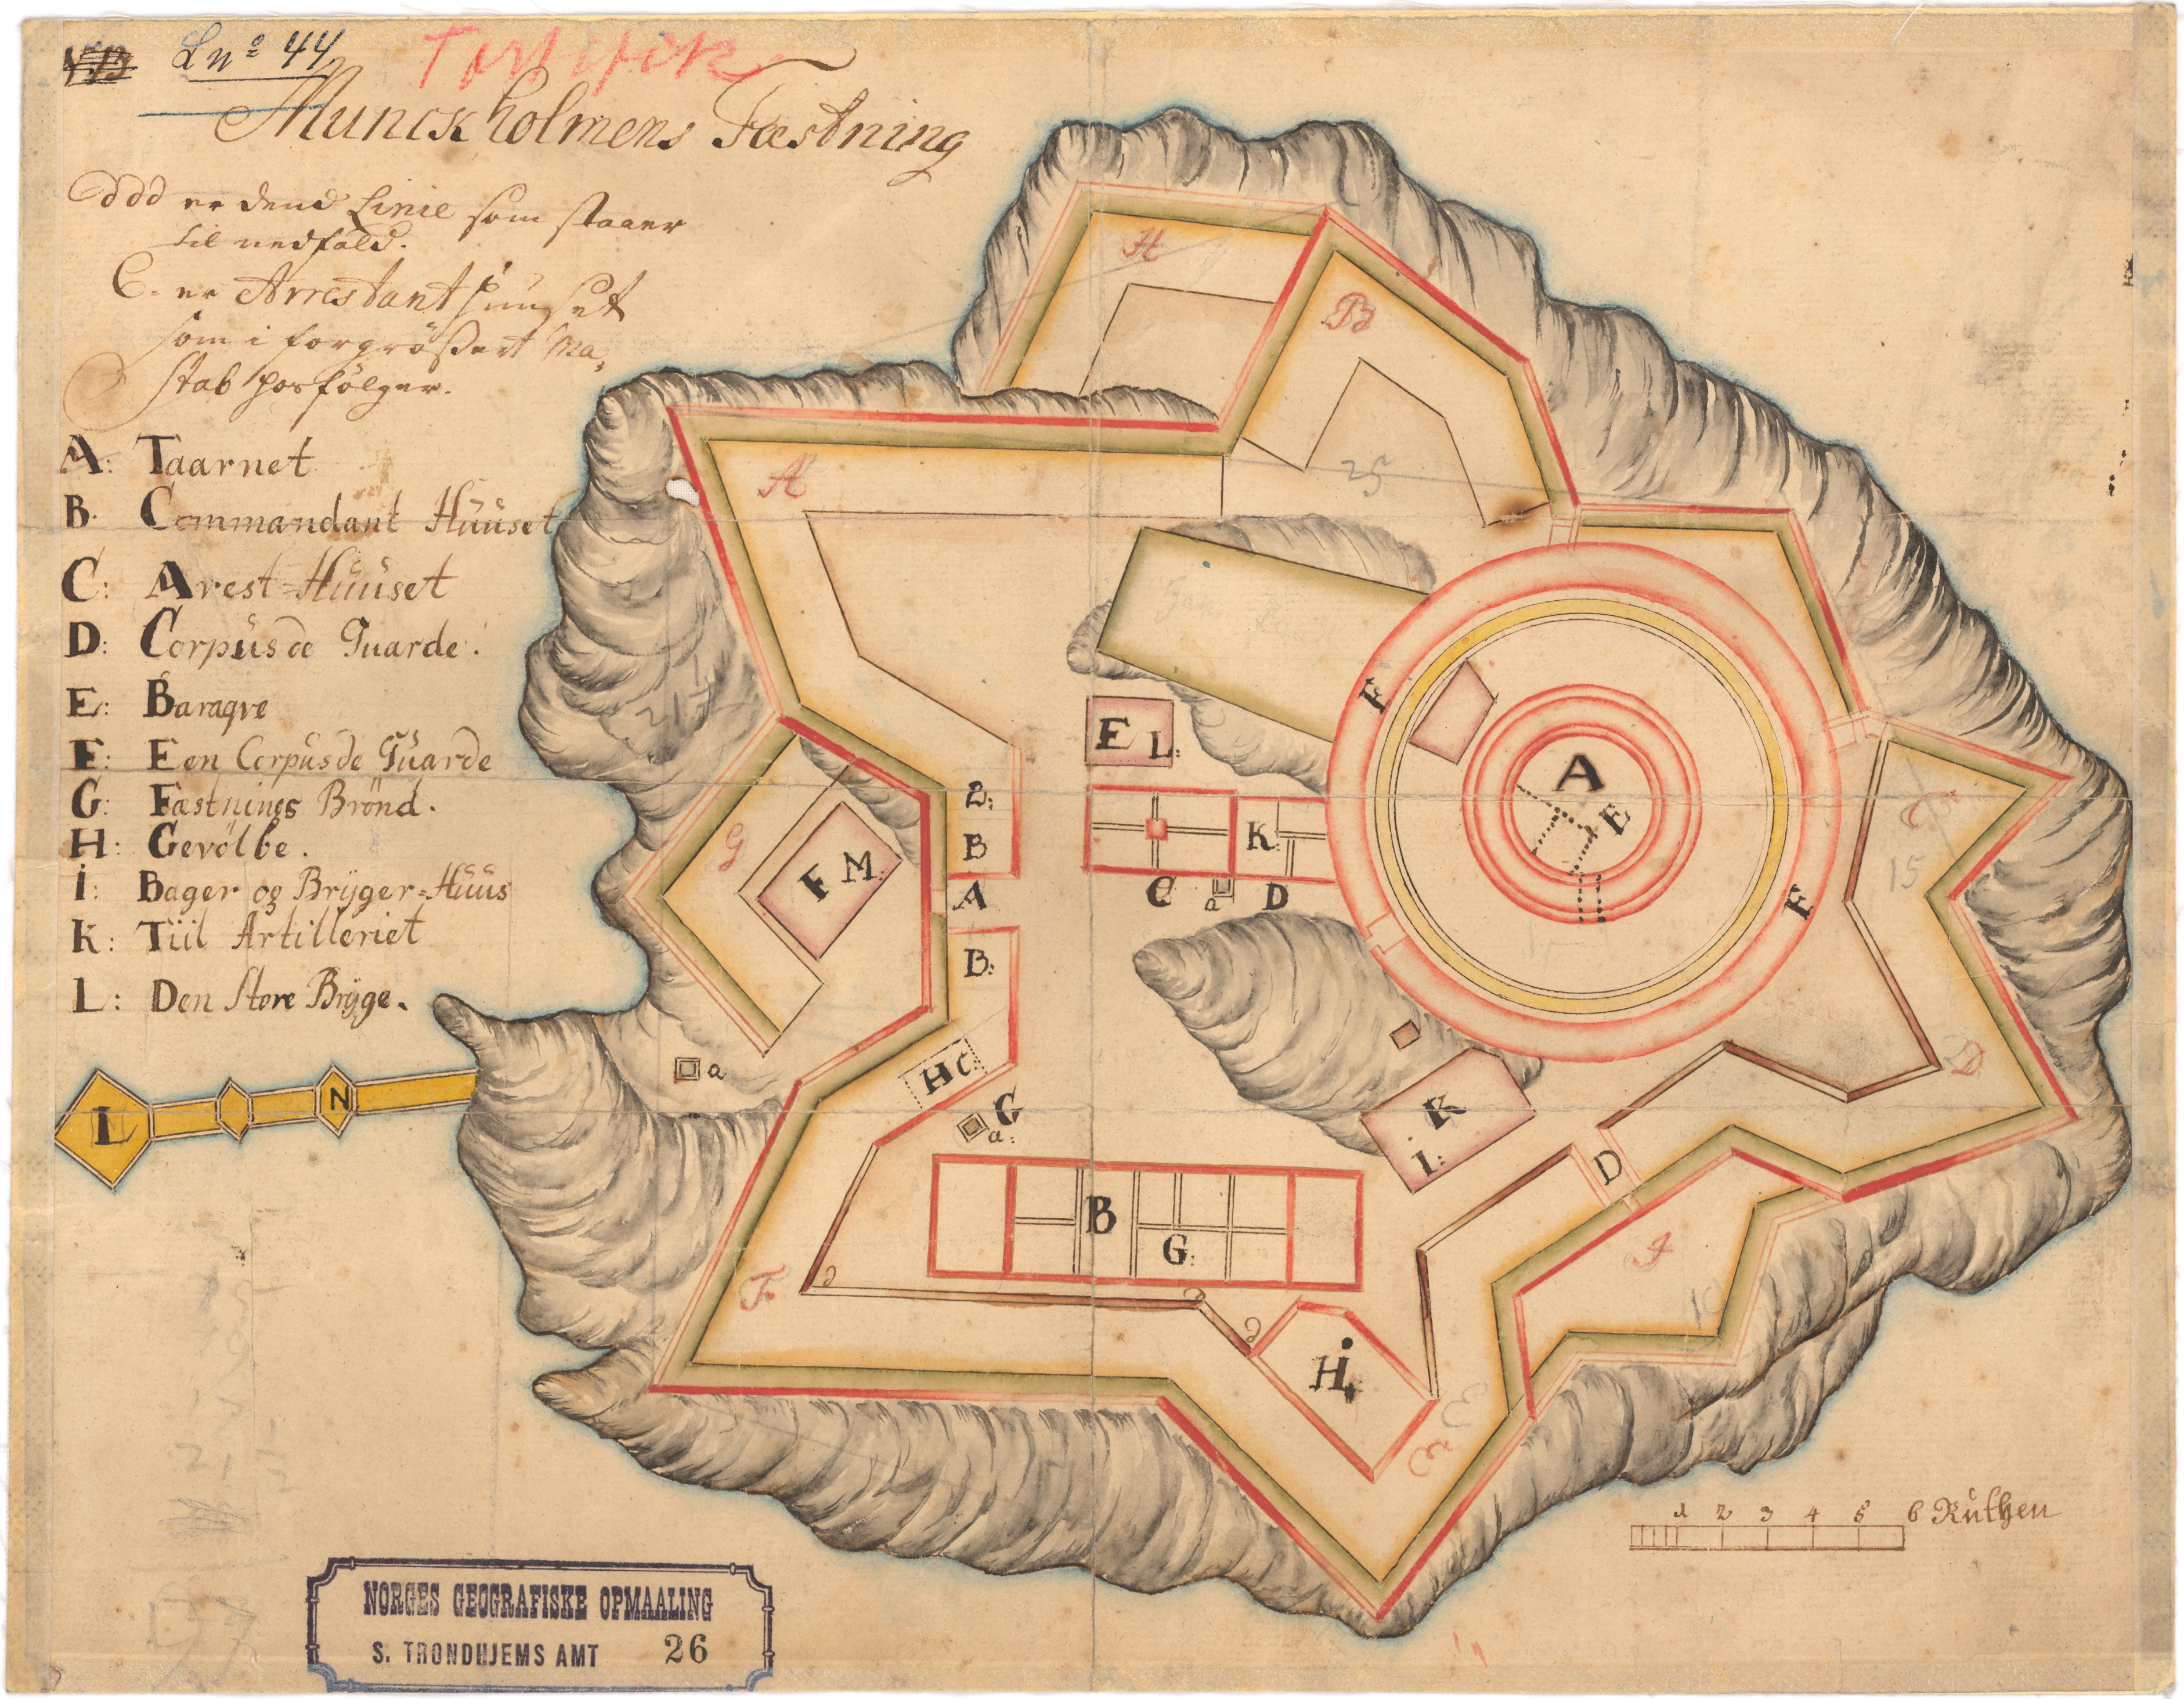 Ln° 44
Munckholmens Fæstning
ddd er dend Linie som staaer
til nedfald.
C. er Arrestanthuuset
som i forgrößert Ma,
stab hosfölger.
A: Taarnet
B. Commandant Hüüset
C: Arest=Hüüset
D: Corpüs de Guarde.
E: Baraqve
F: Een Corpüs de Güarde
G: Fæstnings Brönd.
H: Gevölbe.
i: Bager og Brÿger=Hüüs
K: Tiil Artilleriet
L: Den Store Brÿge.
H
B
25
A
E L:
F
A
E
C
15
2:
B
K:
G
F M:
A
C
a
D
F
B:
D
H C:
a
G
a:
K
i:
L
N
D
B
G:
I
10
F
d
d
d
H
i
E
1 2 3 4 5 6 Rüthen
NORGES GEOGRAFISKE OPMAALING
S. TRONDHJEMS AMT 26